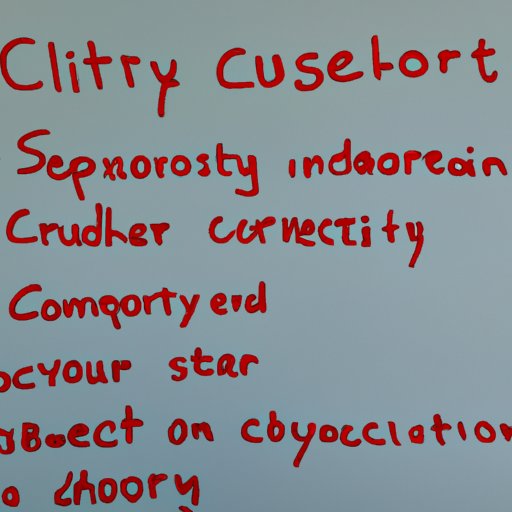 Clitry Cuselort
Sepxorosty indaorecin
Crudher cornectity
Comqorty erd
ocyour star
on cbyocclation